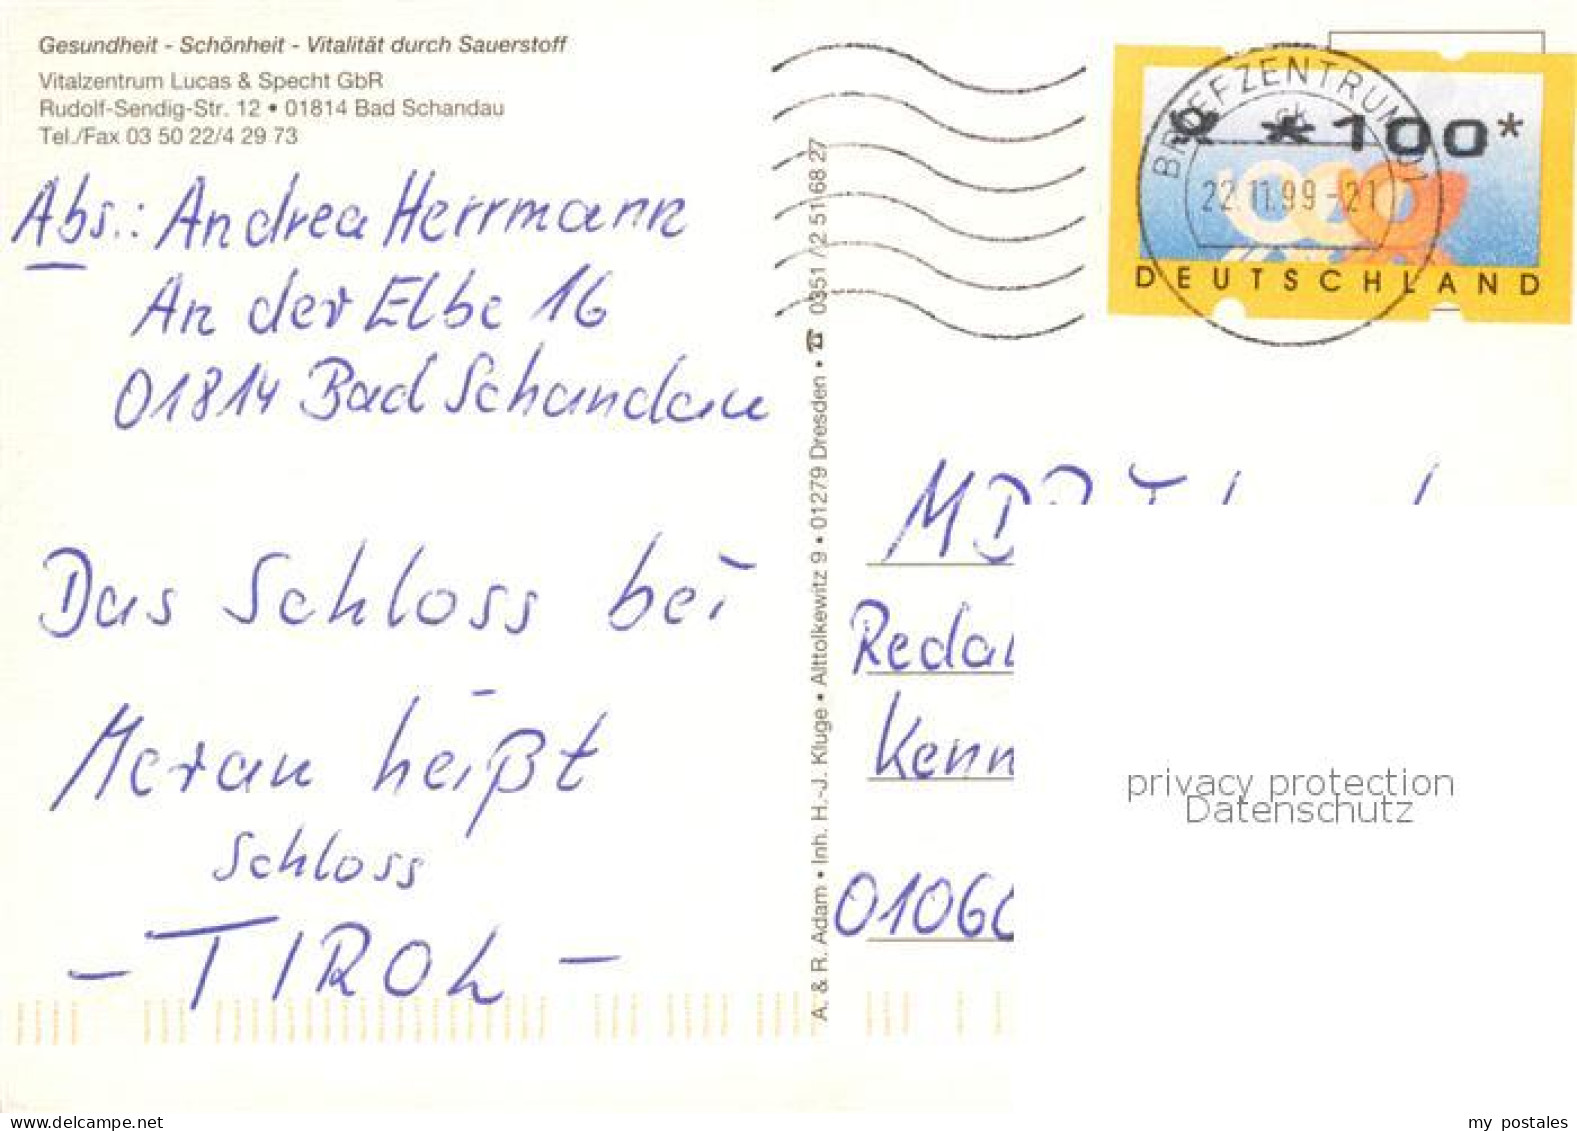 Gesundheit - Schönheit - Vitalität durch Sauerstoff
Vitalzentrum Lucas & Specht GbR
Rudolf-Sendig-Str. 12 • 01814 Bad Schandau
Tel./Fax 03 50 22/4 29 73
Abs.: Andrea Herrmann
An der Elbe 16
01814 Bad Schandau
Das Schloss bei
Meran heißt
Schloss
- TIROL -
A. & R. Adam • Inh. H.-J. Kluge • Alttolkewitz 9 • 01279 Dresden • ☎ 0351 / 2 51 68 27
BRIEFZENTRUM 01
ck
22.11.99-21
*100*
DEUTSCHLAND
Redak
Kenn
0106
privacy protection
Datenschutz
www.delcampe.net
my postales